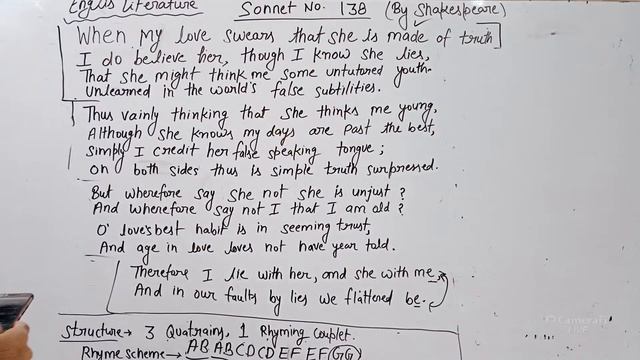 English Literature
Sonnet No. 138 (By Shakespeare)
When my love swears that she is made of truth
I do believe her, though I know she lies,
That she might think me some untutored youth
Unlearned in the world's false subtilities.
Thus vainly thinking that she thinks me young,
Although she knows my days are past the best,
Simply I credit her false speaking tongue;
On both sides thus is simple truth surpressed.
But wherefore say she not she is unjust?
And wherefore say not I that I am old?
O' love's best habit is in seeming trust,
And age in love loves not have year told.
Therefore I lie with her, and she with me
And in our faults by lies we flattered be.
Structure → 3 Quatrains, 1 Rhyming Couplet.
Rhyme scheme → AB AB CD CD EF EF (GG)